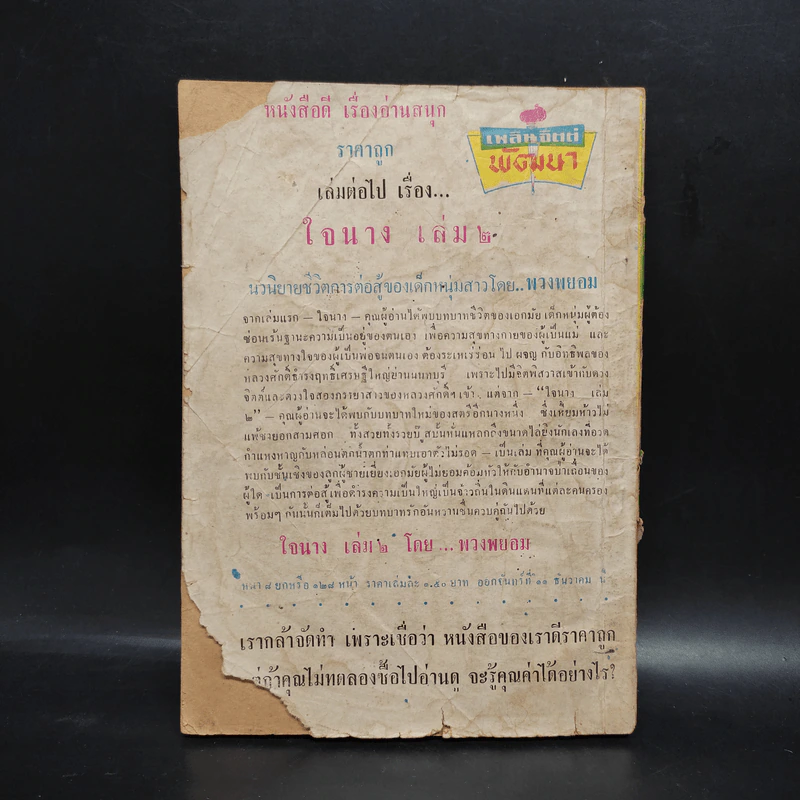 หนังสือดี เรื่องอ่านสนุก
ราคาถูก
เพลินจิตต์
พัฒนา
เล่มต่อไป เรื่อง...
ใจนาง เล่ม ๒
นวนิยายชีวิตการต่อสู้ของเด็กหนุ่มสาวโดย..พวงพยอม
จากเล่มแรก – ใจนาง – คุณผู้อ่านได้พบบทบาทชีวิตของเอกมัย เด็กหนุ่มผู้ต้อง
ซ่อนเร้นฐานะความเป็นอยู่ของตนเอา เพื่อความสุขทางกายของผู้เป็นแม่ และ
ความสุขทางใจของผู้เป็นพ่อจนตนเอง ต้องระเหเร่ร่อน ไป ผจญ กับอิทธิพลของ
หลวงศักดิ์ธำรงฤทธิ์เศรษฐีใหญ่ย่านนนทบุรี เพราะไปมีจิตพิสวาสเข้ากับดวง
จิตต์และดวงใจสองภรรยาสาวของหลวงศักดิ์ฯ เข้า แต่จาก – “ใจนาง เล่ม
๒” – คุณผู้อ่านจะได้พบกับบทบาทใหม่ของสตรีอีกนางหนึ่ง ซึ่งเหี้ยมห้าวไม่
แพ้ชายอกสามศอก ทั้งสวยทั้งรวย สบั้นหั่นแหลกถึงขนาดไล่ยิงนักเลงที่อวด
กำแหงหาญกับหล่อนตกน้ำตกท่าแทบเอาตัวไม่รอด – เป็นเล่ม ที่คุณผู้อ่านจะได้
พบกับชั้นเชิงของลูกผู้ชายเยี่ยงเอกมัยผู้ไม่ยอมค้อมหัวให้กับอำนาจป่าเถื่อนของ
ผู้ใด เป็นการต่อสู้เพื่อดำรงความเป็นใหญ่เป็นจ้าวถิ่นในดินแดนที่แต่ละคนครอง
พร้อมๆ กันนั้นก็เต็มไปด้วยบทบาทรักอันหวานชื่นควบคู่กันไปด้วย
ใจนาง เล่ม ๒ โดย ... พวงพยอม
หนา ๘ ยกหรือ ๑๒๘ หน้า ราคาเล่มละ ๑.๕๐ บาท ออกจันทร์ที่ ๑๑ ธันวาคม นี้
เรากล้าจัดทำ เพราะเชื่อว่า หนังสือของเราดีราคาถูก
ถ้าคุณไม่ทดลองซื้อไปอ่านดู จะรู้คุณค่าได้อย่างไร?